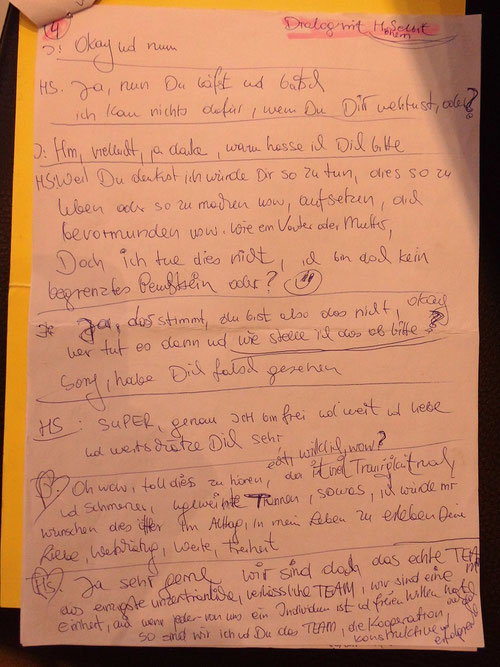 4
Dialog mit H. Selbst
J: Okay ud nun
HS. Ja, nun Du ud
ich kann nichts dafür, wenn Du Dir wehtust, oder?
J: Hm, vielleicht, ja danke, warum hasse ich Dich bitte
HS Weil Du denkst ich würde Dir so zu tun, dies so zu
leben oder so zu machen usw, aufsetzen, dich
bevormunden usw. wie ein Vater oder Mutter,
Doch ich tue dies nicht, ich bin doch kein
begrenztes Bewußtsein oder?
Ja, das stimmt, du bist also das nicht, okay
wer tut es dann ud wie stelle ich das ab bitte?
Sorry, habe Dich falsch gesehen
HS: SUPER, genau Ich bin frei ud weit ud liebe
ud wertschätze Dich sehr
echt, wirklich, wow?
Oh wow, toll dies zu hören, da ist viel Traurigkeit noch
ud Schmerzen, Tränen, sowas, ich würde mir
wünschen dies im Alltag, in mein Leben zu erleben Deine
Liebe, Weite, Freiheit
HS: Ja sehr gerne wir sind doch das echte TEAM
das einzigste unzertrennliche, verlässliche TEAM, wir sind eine
Einheit, auch wenn jeder von uns ein Individuum ist ud freien Willen hat
so sind wir ich ud Du das TEAM, die Kooperation,
konstruktive ud